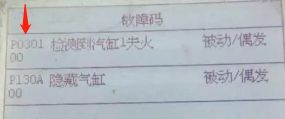 故障码
P0301 检测到汽缸1失火 被动/偶发
00
P130A 隐藏气缸 被动/偶发
00